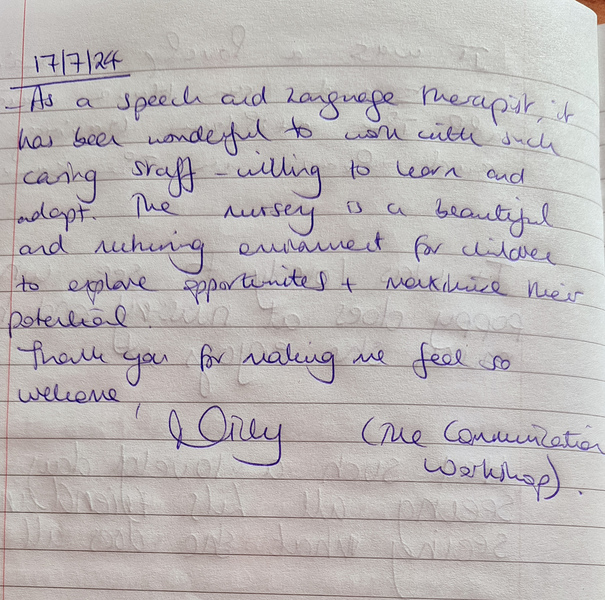 17/7/24
- As a speech and Language therapist, it
has been wonderful to work with such
caring staff - willing to learn and
adapt. The nursery is a beautiful
and nurturing environment for children
to explore opportunites + maximise their
potential.
Thank you for making me feel so
welcome!
(The Communication
Workshop).